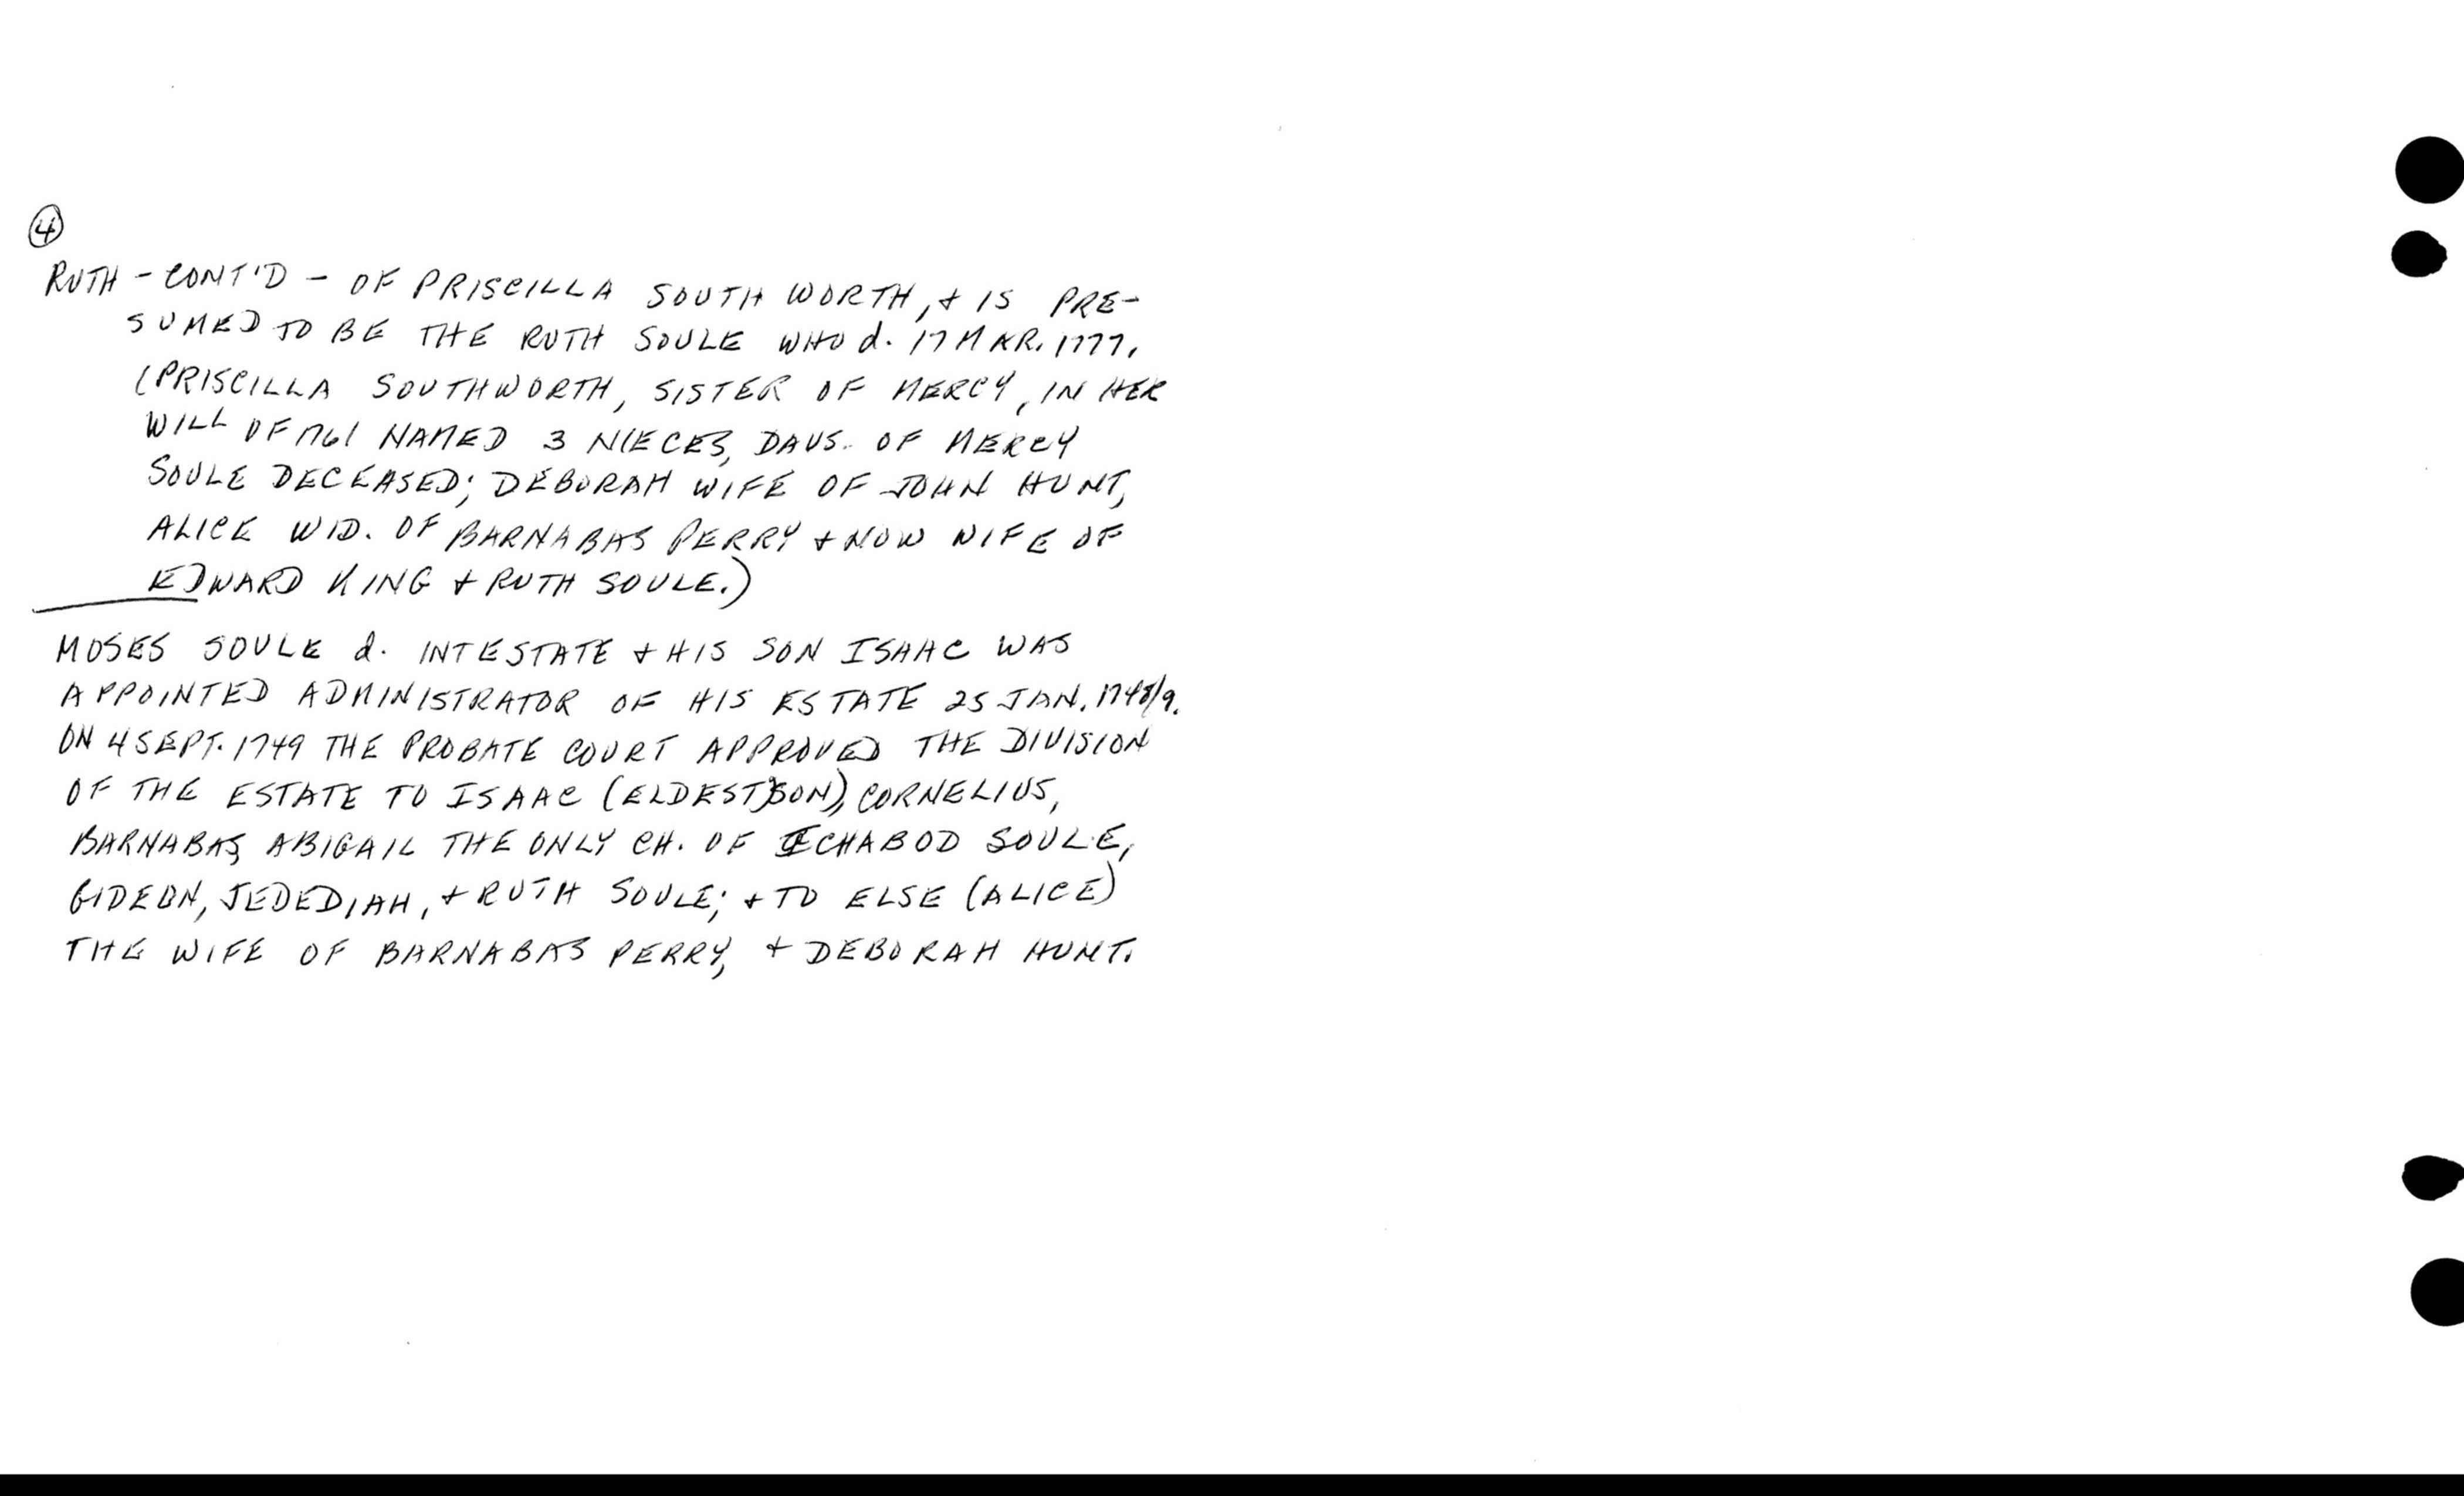 4
RUTH - CONT'D - OF PRISCILLA SOUTHWORTH, + IS PRE-
SUMED TO BE THE RUTH SOULE WHO d. 17 MAR. 1777.
(PRISCILLA SOUTHWORTH, SISTER OF MERCY, IN HER
WILL OF 1761 NAMED 3 NIECES, DAUS. OF MERCY
SOULE DECEASED; DEBORAH WIFE OF JOHN HUNT,
ALICE WID. OF BARNABAS PERRY + NOW WIFE OF
EDWARD KING + RUTH SOULE.)
MOSES SOULE d. INTESTATE + HIS SON ISAAC WAS
APPOINTED ADMINISTRATOR OF HIS ESTATE 25 JAN. 1748/9.
ON 4 SEPT. 1749 THE PROBATE COURT APPROVED THE DIVISION
OF THE ESTATE TO ISAAC (ELDEST SON), CORNELIUS,
BARNABAS, ABIGAIL THE ONLY CH. OF ICHABOD SOULE,
GIDEON, JEDEDIAH, + RUTH SOULE; + TO ELSE (ALICE)
THE WIFE OF BARNABAS PERRY, + DEBORAH HUNT.